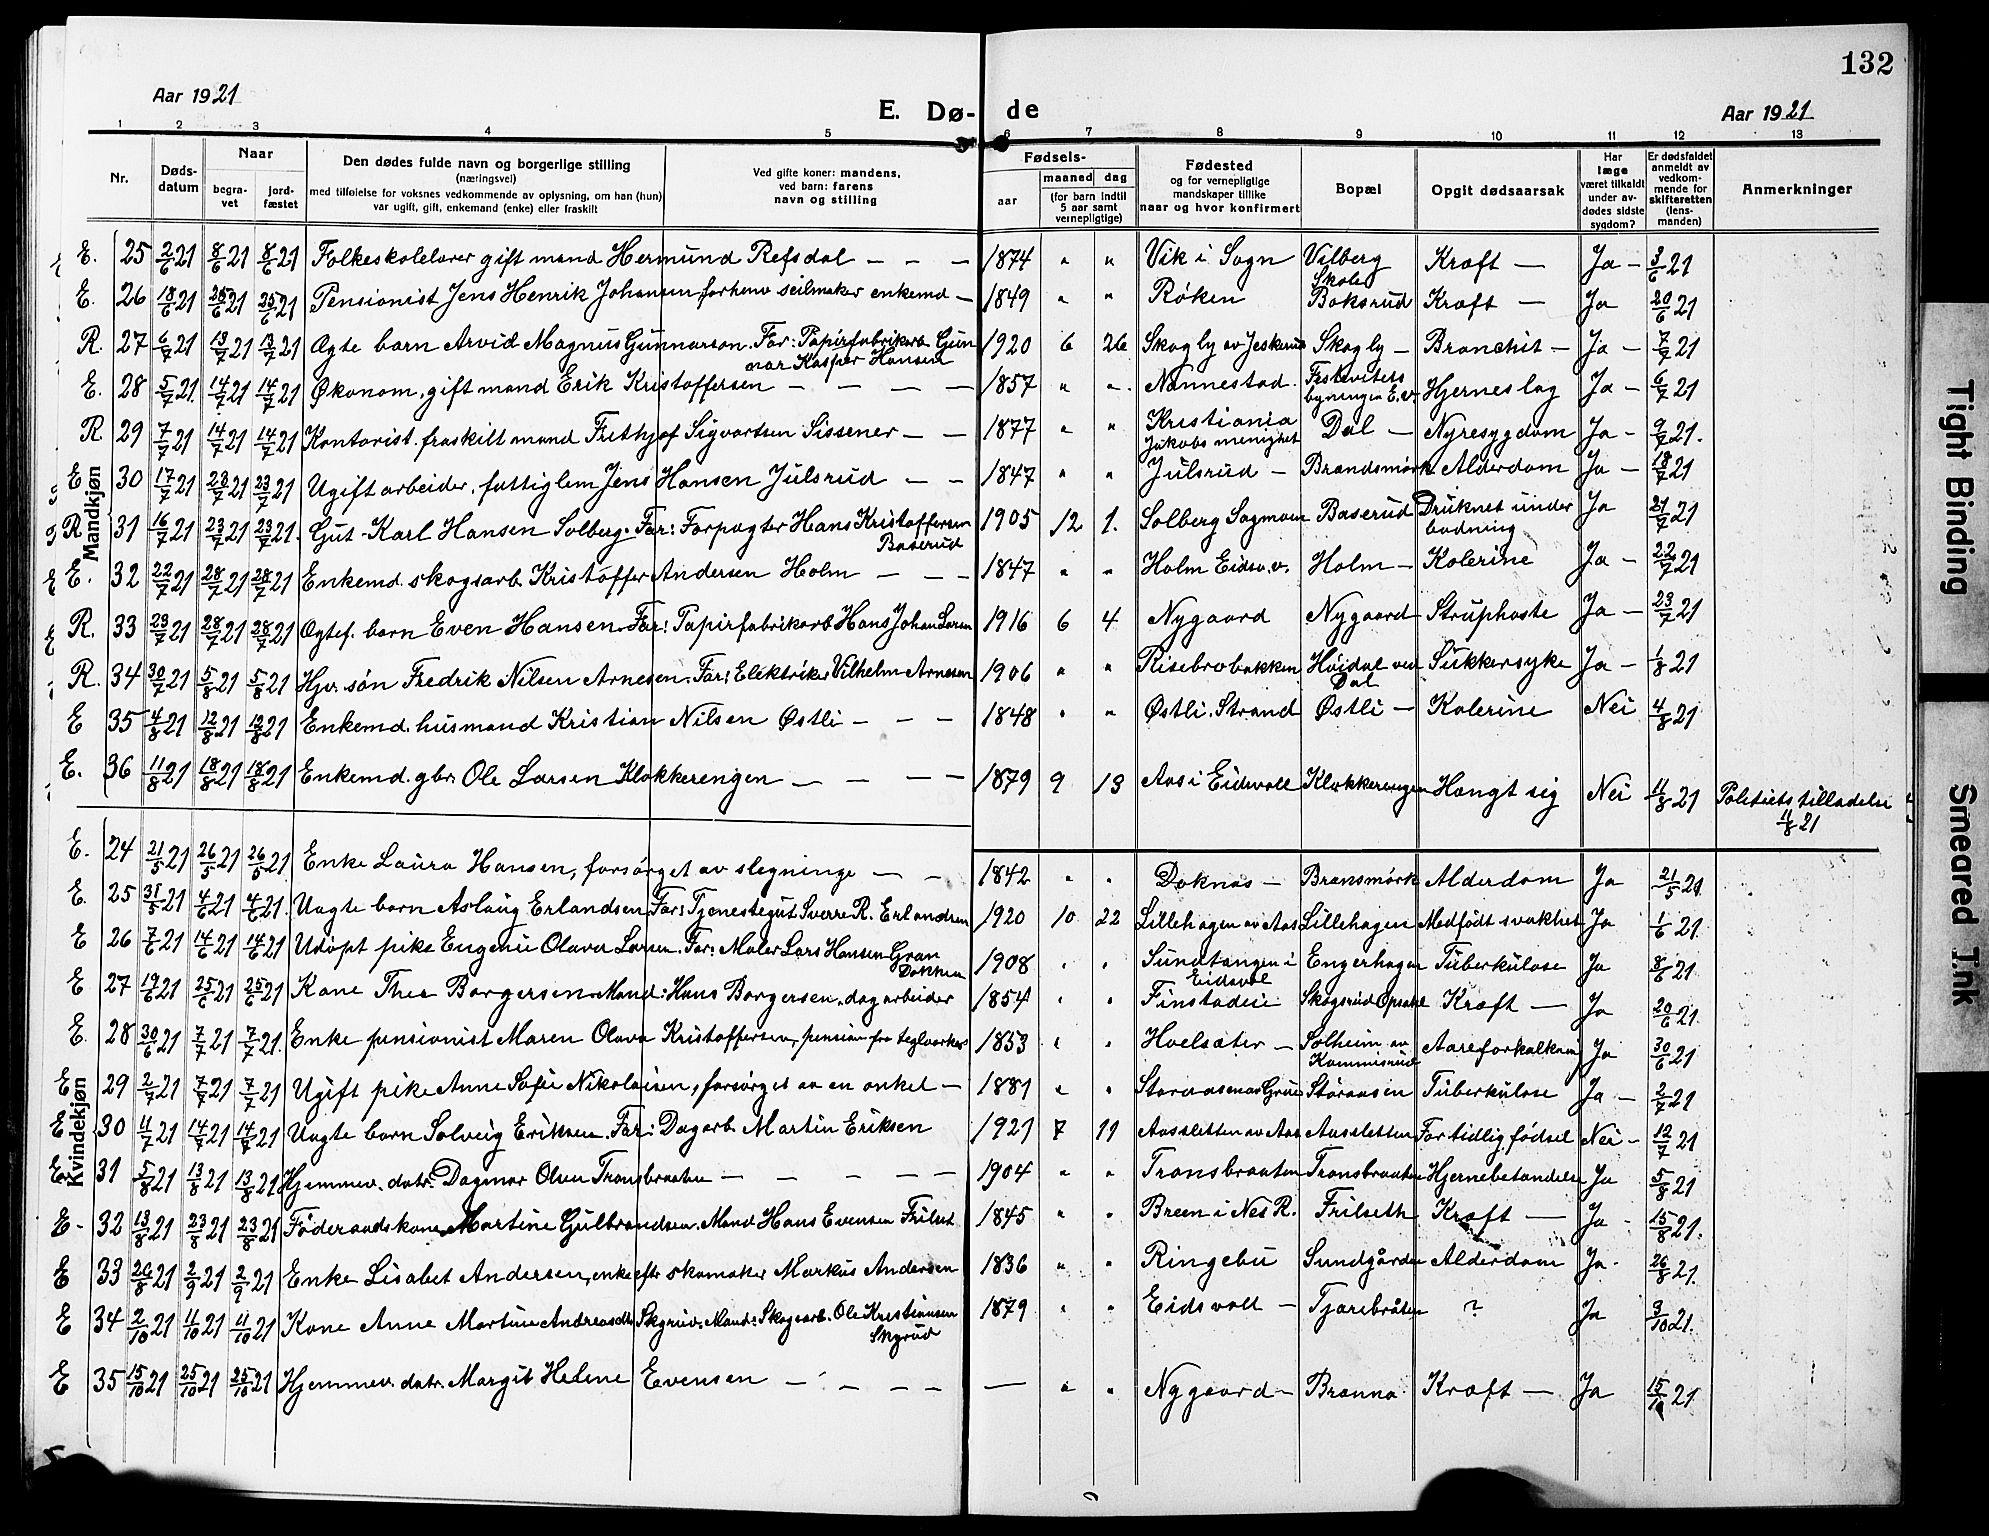 132
Aar 1921
E. Dø- de
Aar 1921
1 2 3 4 5 6 7 8 9 10 11 12 13
Nr.
Døds-datum
Naar
begra-vet
jord-fæstet
Den dødes fulde navn og borgerlige stilling
(næringsvei)
med tilføielse for voksnes vedkommende av oplysning, om han (hun)
var ugift, gift, enkemand (enke) eller fraskilt
Ved gifte koner: mandens,
ved barn: farens
navn og stilling
Fødsels-
aar
maaned dag
(for barn indtil
5 aar samt
vernepligtige)
Fødested
og for vernepligtige
mandskaper tillike
naar og hvor konfirmert
Bopæl
Opgit dødsaarsak
Har
læge
været tilkaldt
under av-
dødes sidste
sygdom?
Er dødsfaldet
anmeldt av
vedkom-
mende for
skifteretten
(lens-
manden)
Anmerkninger
Mandkjøn
E. 25 2/6 21 8/6 21 8/6 21 Folkeskolelærer gift mand Hermund Refsdal — — — 1874 " " Vik i Sogn Vilberg Skole Kræft — Ja — 3/6 21
E. 26 18/6 21 25/6 21 25/6 21 Pensionist Jens Henrik Johansen, forhenv seilmaker enkemd — 1849 " " Røken Boksrud Kræft — Ja 20/6 21
R. 27 6/7 21 13/7 21 13/7 21 Ægte barn Arvid Magnus Gunnarson. Far: Papirfabrikarb. Gunnar Kasper Hansen 1920 6 26 Skogly av Jeskerud Skogly — Bronchit — Ja — 7/7 21
E. 28 5/7 21. 14/7 21 14/7 21 Økonom, gift mand Erik Kristoffersen — — — — 1857 " " Nannestad. Hjerneslag Ja — 6/7 21
R 29 7/7 21 14/7 21 14/7 21 Kontorist. fraskilt mand Frithjof Sigvartsen Sissener — — 1877 " " Kristiania Jakobs menighet Dal — Nyresygdom Ja — 9/7 21.
E 30 17/7 21 23/7 21 23/7 21 Ugift arbeider, fattiglem Jens Hansen Julsrud — — 1847 " " Julsrud — Brandsmørk Alderdom Ja — 18/7 21
R 31 16/7 21 23/7 21 23/7 21. Gut Karl Hansen Solberg. Far: Forpagter Hans Kristoffersen Baserud 1905 12 1. Solberg Baserud Druknet under badning Ja 21/7 21
E. 32 22/7 21 28/7 21 28/7 21 Enkemd. skogsarb. Kristoffer Andersen Holm — — — 1847 " " Holm Eidsv. v. Holm — Kolerine Ja — 22/7 21
R. 33 23/7 21 28/7 21 28/7 21 Ogtef. barn Even Hansen. Far: Papirfabrikarb Hans Johan Larsen 1916 6 4 Nygaard Nygaard Struphoste Ja — 23/7 21
R. 34 30/7 21 5/8 21 5/8 21 Hjv. søn Fredrik Nilsen Arnesen. Far: Elektriker Vilhelm Arnesen 1906 " " Risebrobakken Høidal ved Dal Sukkersyke Ja — 1/8 21
E 35 4/8 21 12/8 21 12/8 21 Enkemd. husmand Kristian Nilsen Østli — — — 1848 " " Østli. Strand Østli — Kolerine Nei 4/8 21
E. 36 11/8 21 18/8 21 18/8 21 Enkemd. gbr. Ole Larsen Klokkerengen — — — — 1879 9 13 Aas i Eidsvoll Klokkerengen Hængt sig Nei 11/8 21 Politiets tilladelse 11/8 21
Kvindekjøn
E. 24 21/5 21 26/5 21 26/5 21 Enke Laura Hansen, forsørget av slegninge — — 1842 " " Doknes — Bransmørk Alderdom Ja 21/5 21
E. 25 31/5 21 4/6 21 4/6 21. Uægte barn Aslaug Erlandsen Far: Tjenestegut Sverre R. Erlandsen 1920 10 22 Lillehagen av Aas Lillehagen Medfødt svakhet Ja 1/6 21.
E 26 7/6 21 14/6 21 14/6 21 Udøpt pike Eugenie Olava Larsen. Far: Maler Lars Hansen Gran 1908 " " Sundtangen i Eidsvol Engerhagen Tuberkulose Ja 8/6 21
E 27 19/6 21 25/6 21 25/6 21 Kone Thea Borgersen. Mand: Hans Borgersen, dagarbeider 1854 " " Finstadeie Skogsrud Kræft — Ja 20/6 21.
E. 28 30/6 21 7/7 21 7/7 21. Enke pensionist Maren Olava Kristoffersen, pension fra teglverket 1853 " " Hoelsæter — Solheim av Kommisrud Aareforkalkning Ja 30/6 21
E 29 2/7 21 7/7 21 7/7 21 Ugift pike Anne Sofie Nikolaisen, forsørget av en onkel — 1881 " " Støraasen Tuberkulose Ja — 2/7 21
E 30 11/7 21 14/7 21 14/7 21 Uægte barn Solveig Eriksen. Far: Dagarb. Martin Eriksen 1921 7 11 Aassletten av Aas Aassletten For tidlig fødsel Nei — 12/7 21
E 31 5/8 21 13/8 21 13/8 21 Hjemmev. datr. Dagmar Olsen Transbraaten — — — — 1904 " " Transbraaten Transbraaten Hjernebetændelse Ja 5/8 21
E - 32 13/8 21 23/8 21 23/8 21 Føderaadskone Martine Gulbrandsen. Mand Hans Evensen Frilset 1845 " " Breen i Nes R. Frilseth Kræft — Ja - 15/8 21.
E 33 26/8 21 2/9 21 2/9 21 Enke Lisabet Andersen, enke eftr skomaker Markus Andersen 1836 " " Ringebu Sundgården Alderdom Ja. 26/8 21.
E 34 2/10 21 11/10 21 11/10 21 Kone Anne Martine Andreasdtr Skgrud. Mand: Skogsarb. Ole Kristiansen Skgrud 1879 " " Eidsvold — Tjærebråten ? Ja 3/10 21.
E 35 15/10 21 25/10 21 25/10 21 Hjemmev. datr. Margit Helene Evensen — — — — — " " Nygaard — Brænna. Kræft — Ja 15/10 21
Tight Binding
Smeared Ink